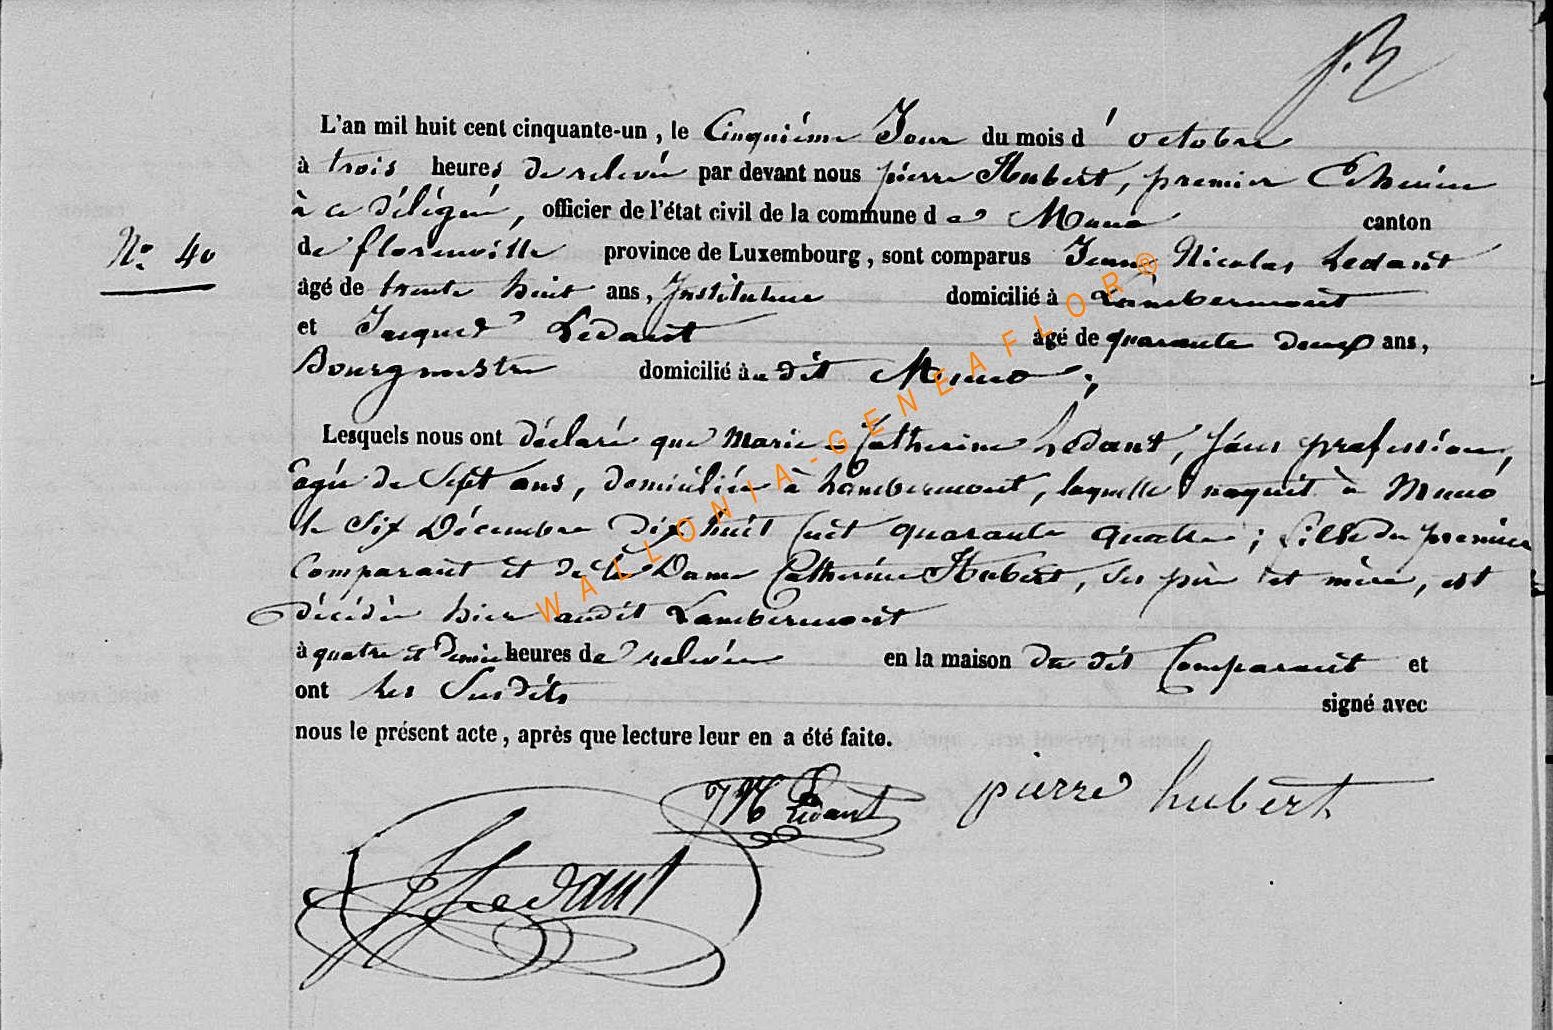 L'an mil huit cent cinquante-un, le Cinquième Jour du mois d' octobre
à trois heures de relevée par devant nous pierre Hubert, premier Echevin
à ce délégué, officier de l'état civil de la commune de Muno canton
No. 40
de florenville province de Luxembourg, sont comparus Jean Nicolas Ledant
âgé de trente huit ans, Instituteur domicilié à Lambermont
et Jacques Ledant âgé de quarante deux ans,
Bourgmestre domicilié àu dit Muno ;
Lesquels nous ont déclaré que Marie Catherine Ledant, sans profession,
agée de Sept ans, domiciliée à Lambermont, laquelle naquit à Muno
le Six Décembre Dix huit cent quarante quatre ; fille du premier
Comparant et de la Dame Catherine Hubert, ses père et mère, est
décédée hier audit Lambermont
à quatre et Demie heures de relevée en la maison du dit Comparant et
ont les Susdits signé avec
nous le présent acte, après que lecture leur en a été faite.
JN Ledant pierre hubert
J Ledant
WALLONIA-GENEAFLOR®